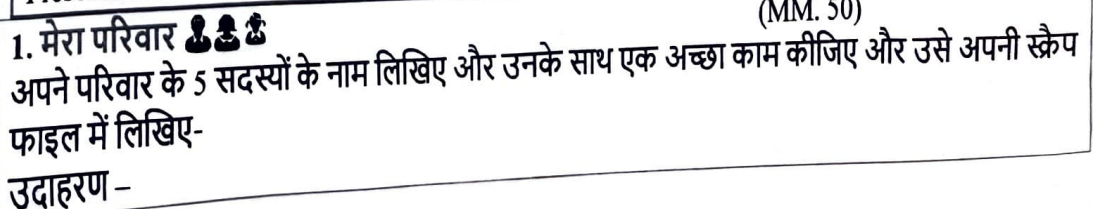 (MM. 50)
1. मेरा परिवार
अपने परिवार के 5 सदस्यों के नाम लिखिए और उनके साथ एक अच्छा काम कीजिए और उसे अपनी स्क्रैप
फाइल में लिखिए-
उदाहरण –